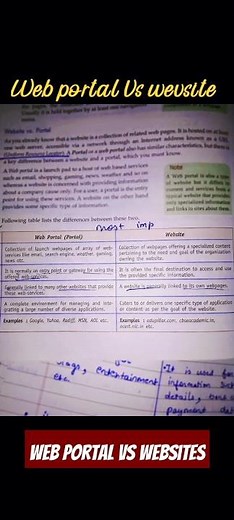 Web portal Vs wevsite
Website vs. Portal
As you already know that a website is a collection of related web pages. It is hosted on at least
one web server, accessible via a network through an Internet address known as a URL
(Uniform Resource Locator). A Portal or a web portal also has similar characteristics, but there is
a key difference between a website and a portal, which you must know.
A Web portal is a launch pad to a host of web based services
such as email, shopping, gaming, news, weather and so on
whereas a website is concerned with providing information
about a company
point for using these services. A website on the other hand
provides some specific type of information.
Note
A Web portal is also a
of website but it differs in
content and services
typical website that provides
only specialized information
and links to sites about them.
Following table lists the differences between these two.
most imp
Web Portal (Portal)
Website
Collection of launch webpages of array of web-
services like email, search engine, weather, gaming,
news etc.
Collection of webpages offering a specialized content
pertaining to the need and goal of the organization
owning the website.
It is normally an entry point or gateway for using the
offered web-services.
It is often the final destination to access and use
the provided specific information.
Generally linked to many other websites that provide
these web-services.
A website is generally linked to its own webpages.
A complete environment for managing and inte-
grating a large number of diverse applications.
Caters to or delivers one specific type of application
or content as per the goal of the website.
Examples : Google, Yahoo, Rediff, MSN, AOL etc.
Examples : edupillar.com, cbseacademic.in,
ncert.nic.in etc.
entertainment
etc.
It is used for
information
details,
payment
WEB PORTAL VS WEBSITES